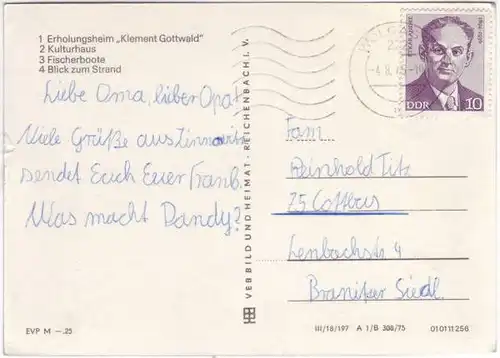 1 Erholungsheim „Klement Gottwald"
2 Kulturhaus
3 Fischerboote
4 Blick zum Strand
Liebe Oma, lieber Opa!
Viele Grüße aus Zinnowitz
sendet Euch Euer Frank.
Was macht Dandy?
EVP M –.25
VEB BILD UND HEIMAT · REICHENBACH I. V.
DDR 10
Fam
Reinhold Titz
75 Cottbus
Lenbachstr 4
Branitzer Siedl.
III/18/197 A 1/B 308/75 010111256